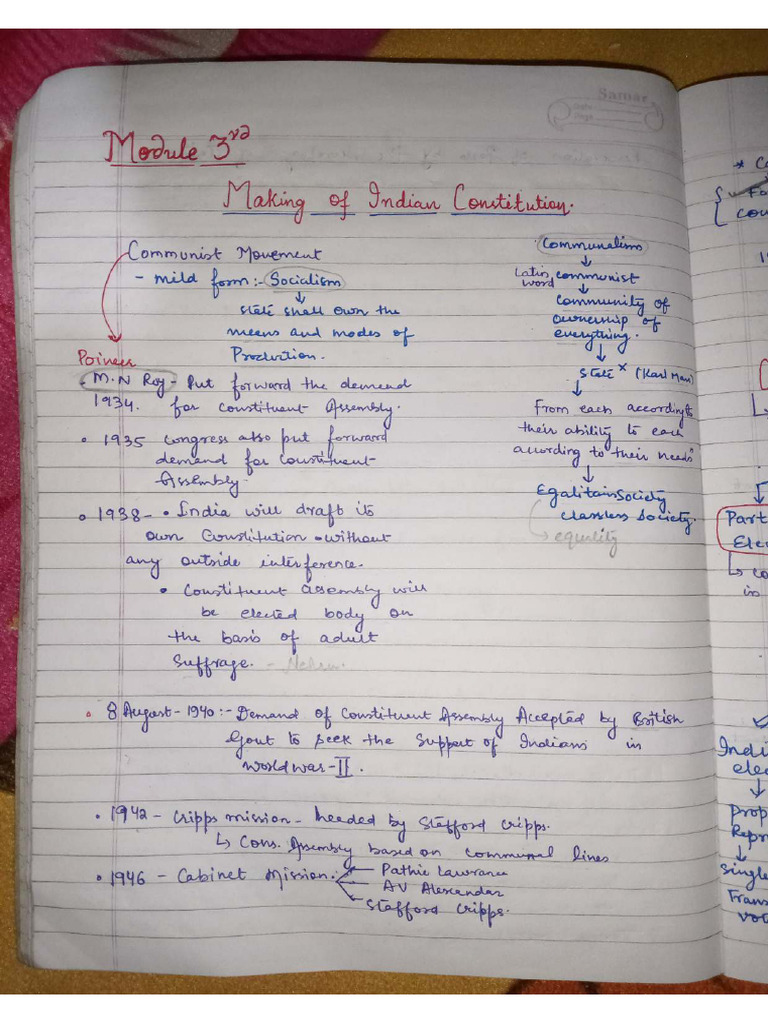 Samar
Date
Page
Module 3rd
Making of Indian Constitution.
Communist Movement
- mild form :- Socialism
↓
state shall own the
means and modes of
Production.
Poineer
- M.N Roy - Put forward the demand
1934. for constituent Assembly.
• 1935 Congress also put forward
demand for Constituent
Assembly.
• 1938 - • India will draft its
own Constitution without
any outside interference.
• Constituent assembly will
be elected body on
the basis of adult
suffrage. - Nehru.
Communalism
↓
Latin word communist
↓
Community of
ownership of
everything.
↓
state x (Karl Marx)
↓
From each according to
their ability to each
according to their needs"
↓
Egalitain Society
classless society.
→ equality
• 8 August - 1940 :- Demand of Constituent Assembly Accepted by British
Govt to seek the support of Indians in
world war - II.
• 1942 - Cripps mission - headed by Stafford Cripps.
↳ Cons. Assembly based on communal lines
• 1946 - Cabinet Mission :- Pathic Lawrance
AV Alexandar
Stafford Cripps.
Part
Elec
↳ co
in
Indi
elec
↓
Prop
Repr
↓
Single
Trans
vot